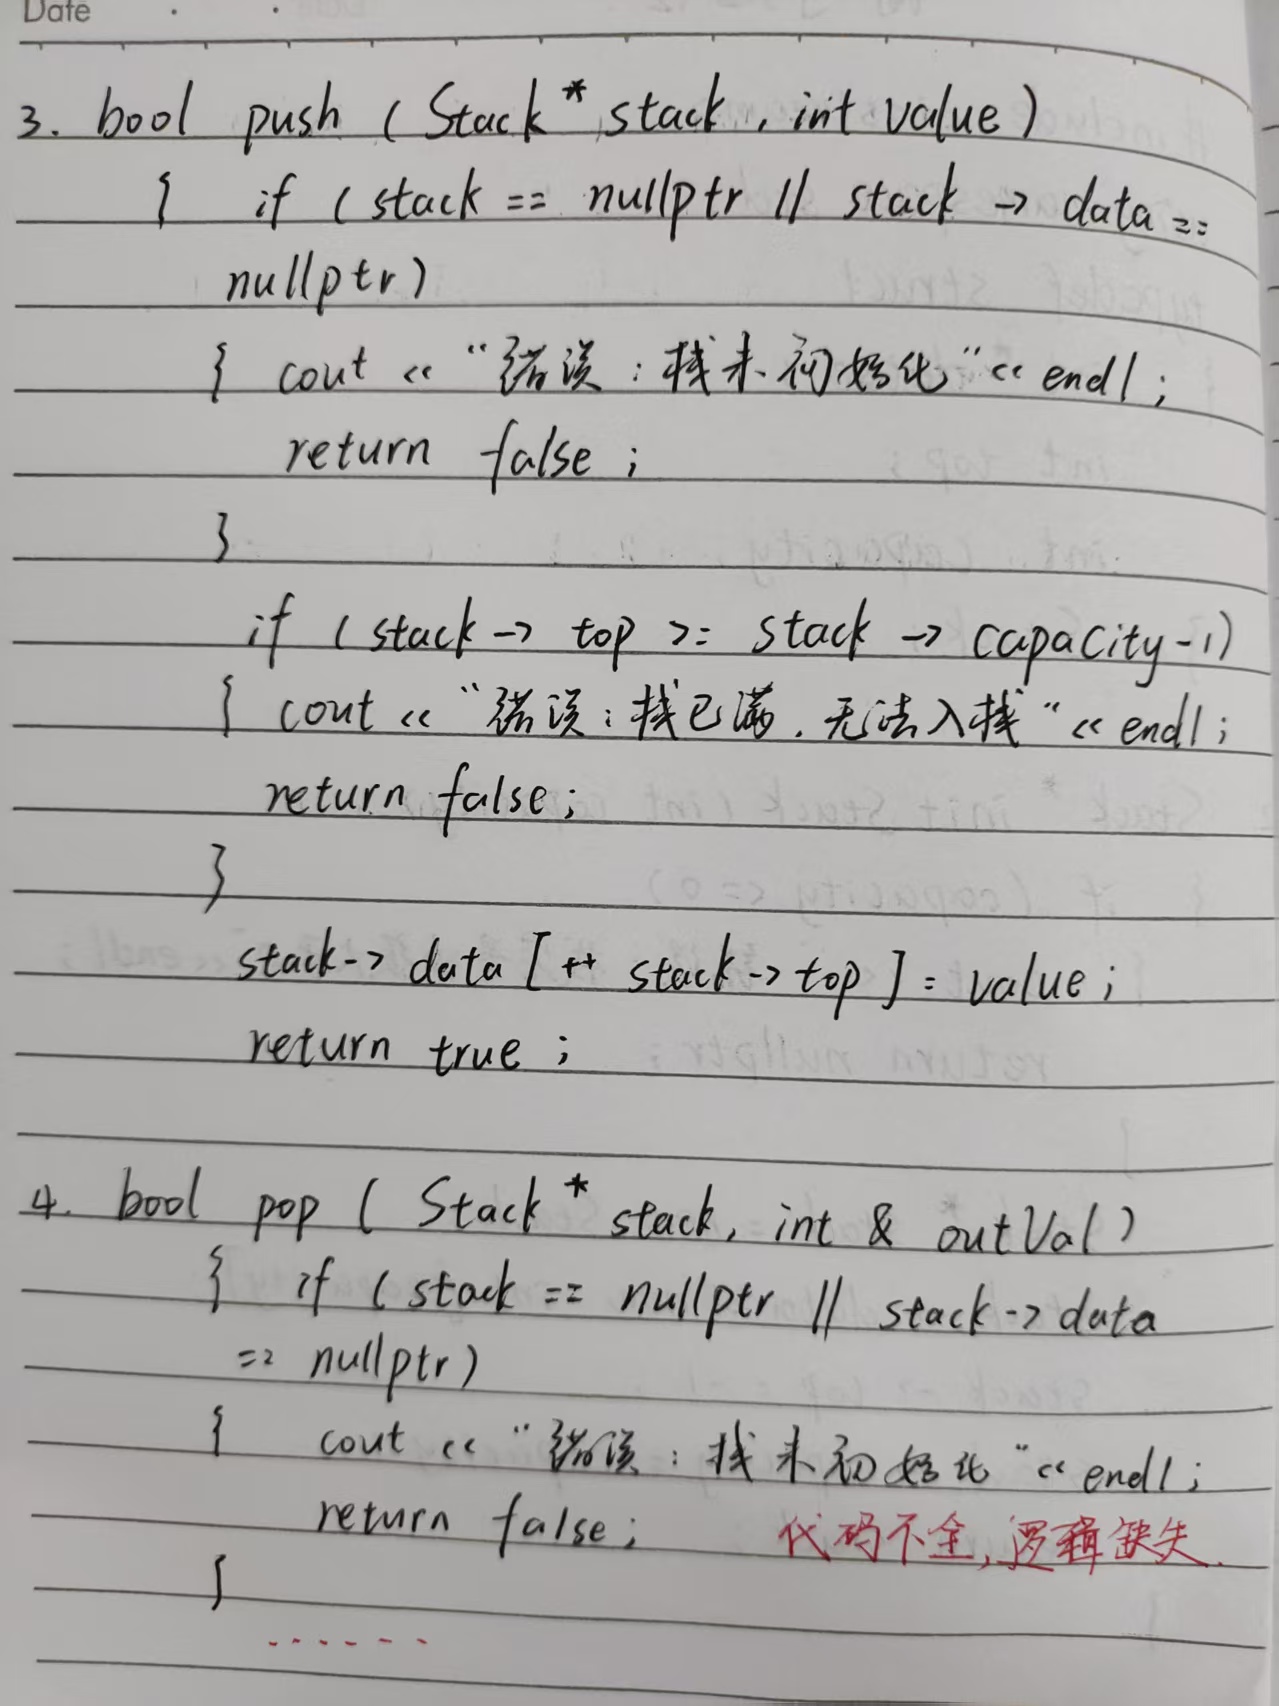 Date
3. bool push (Stack * stack, int value)
{ if (stack == nullptr || stack -> data ==
nullptr)
{ cout << "错误:栈未初始化" << endl;
return false;
}
if (stack -> top >= stack -> capacity-1)
{ cout << "错误:栈已满,无法入栈" << endl;
return false;
}
stack -> data [++ stack -> top] = value;
return true;
4. bool pop ( Stack * stack, int & outVal)
{ if (stack == nullptr || stack -> data
== nullptr)
{ cout << "错误:栈未初始化" << endl;
return false; 代码不全,逻辑缺失.
}
......